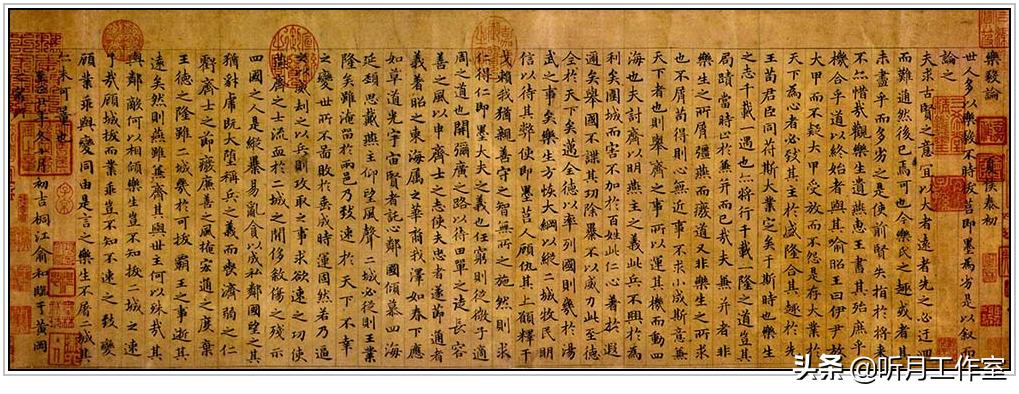 樂毅論　夏侯泰初
世人多以樂毅不時拔莒即墨為劣是以敘而
論之
夫求古賢之意宜以大者遠者先之必迂迴
而難通然後已焉可也今樂氏之趣或者其
未盡乎而多劣之是使前賢失指於將來
不亦惜哉觀樂生遺燕惠王書其殆庶乎
機合乎道以終始者與其喻昭王曰伊尹放
大甲而不疑大甲受放而不怨是存大業於
天下為心者必致其主於盛隆合其趣於先
王苟君臣同苻斯大業定矣于斯時也樂生
之志千載一遇也亦將行千載一隆之道豈其
局蹟當時止於兼并而已哉夫兼并者非
樂生之所屑彊燕而廢道又非樂生之所求
也不屑苟得則心無近事不求小成斯意兼
天下者也則舉齊之事所以運其機而動四
海也夫討齊以明燕主之義此兵不興於為
利矣圍城而害不加於百姓此仁心著於遐
邇矣舉國不謀其功除暴不以威力此至德
全於天下矣邁全德以率列國則幾於湯
武之事矣樂生方恢大綱以縱二城牧民明
信以待其弊使即墨莒人顧仇其上願釋干
戈賴我猶親善守之智無所之施然則求
仁得仁即墨大夫之義也任窮則從微子適
周之道也開彌廣之路以待田單之徒長容
善之風以申齊士之志使夫忠者遂節通者
義著昭之東海屬之華裔我澤如春下應
如草道光宇宙賢者託心鄰國傾慕四海
延頸思戴燕主仰望風聲二城必從則王業
隆矣雖淹留於兩邑乃致速於天下不幸
之變世所不圖敗於垂成時運固然若乃逼
之以威劫之以兵則攻取之事求欲速之功使
燕齊之士流血於二城之間侈殺傷之殘示
四國之人是縱暴易亂貪以成私鄰國望之其
猶豺虎既大墮稱兵之義而喪濟弱之仁
虧齊士之節廢廉善之風掩宏通之度棄
王德之隆雖二城幾於可拔霸王之事逝其
遠矣然則燕雖兼齊其與世主何以殊哉其
與鄰敵何以相傾樂生豈不知拔二城之速
了哉顧城拔而業乖豈不知不速之致變
顧業乖與變同由是言之樂生不屠二城其
亦未可量也
年冬十月初吉桐江俞和臨于岡
头条 @听月工作室